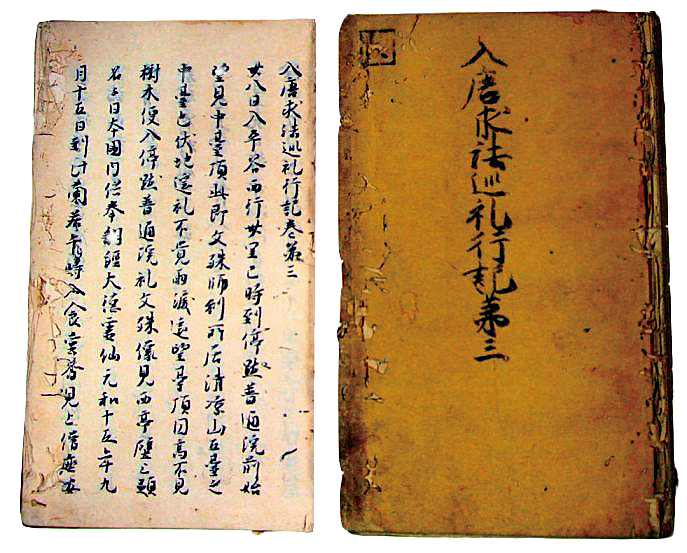 入唐求法巡礼行記卷第三
廿八日入平谷西行卅里巳時到停點普通院前始
望見中臺頂此即文殊師利所居清凉山五臺之
中臺也伏地遥礼不覚雨涙遥望臺頂円高不見
樹木便入停點普通院礼文殊像見西亭壁上題
名云日本國内供奉翻經大德霊仙元和十五年九
月十五日到此蘭若午時入食堂齋見上僧座安
入唐求法巡礼行記第三